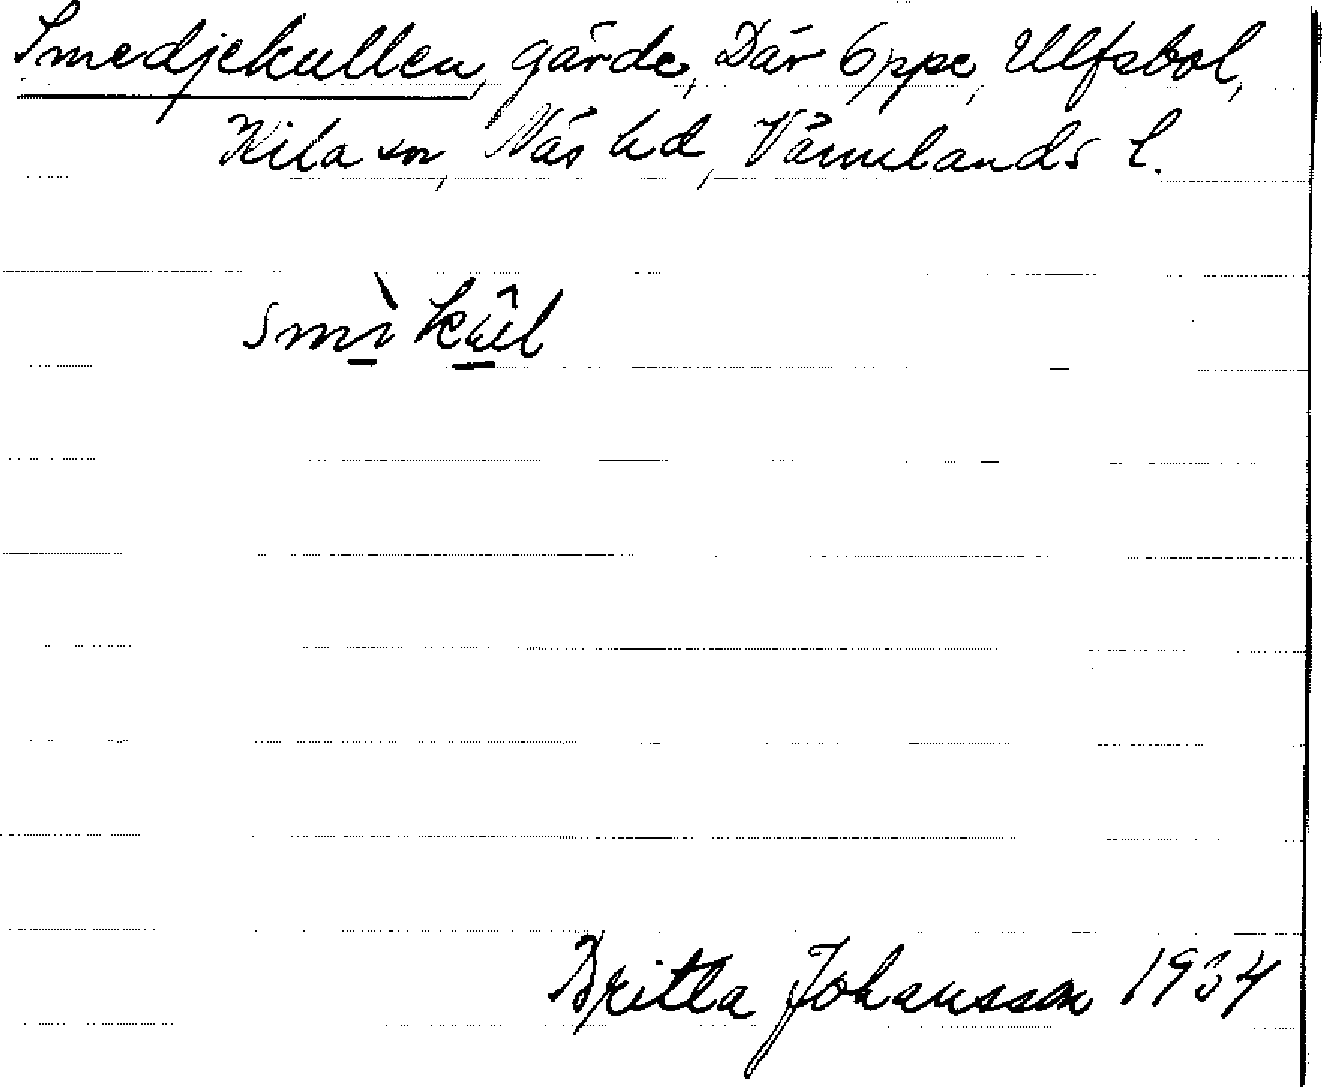 Smedjekullen, gärde, Där Öppe, Ulfsbol,
Kila sn, Näs hd, Värmlands l.
smi kul
Britta Johansson 1934